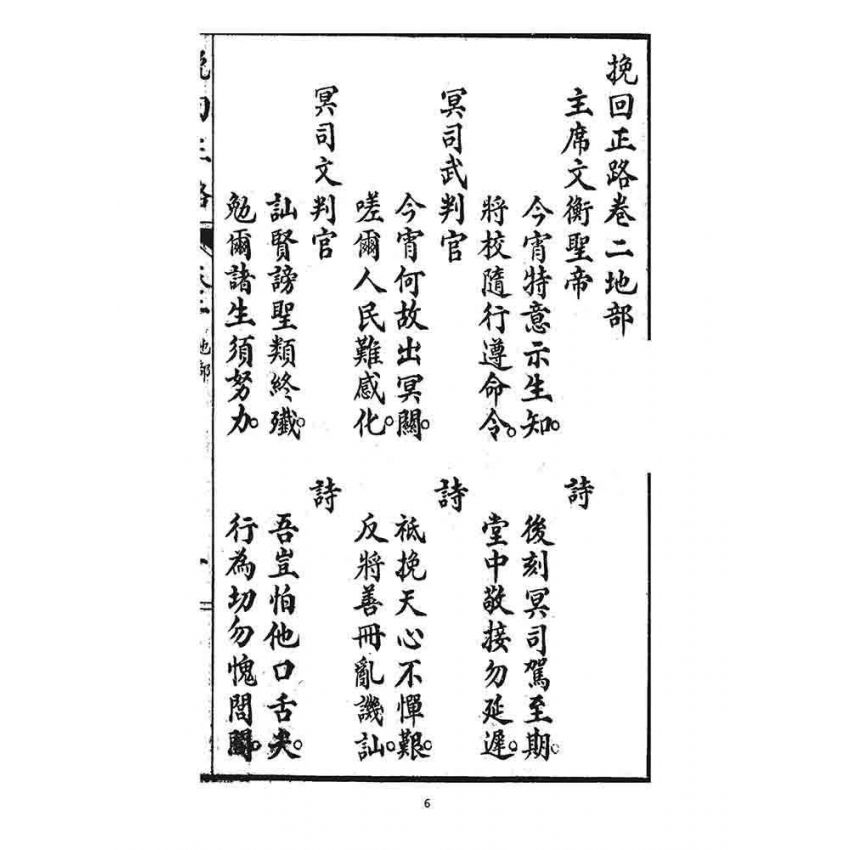 挽回正路卷二地部
主席文衡聖帝　詩
今宵特意示生知。後刻冥司駕至期。
將校隨行遵命令。堂中敬接勿延遲。
冥司武判官　詩
今宵何故出冥關。祗挽天心不憚艱。
嗟爾人民難感化。反將善冊亂譏訕。
冥司文判官　詩
訕賢謗聖類終殲。吾豈怕他口舌尖。
勉爾諸生須努力。行為切勿愧閭。
地部
6